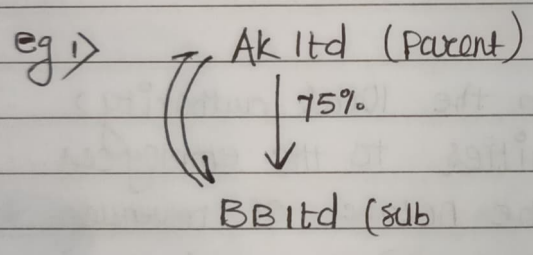 eg 1>
AK ltd (Parent)
75%
BB ltd (sub